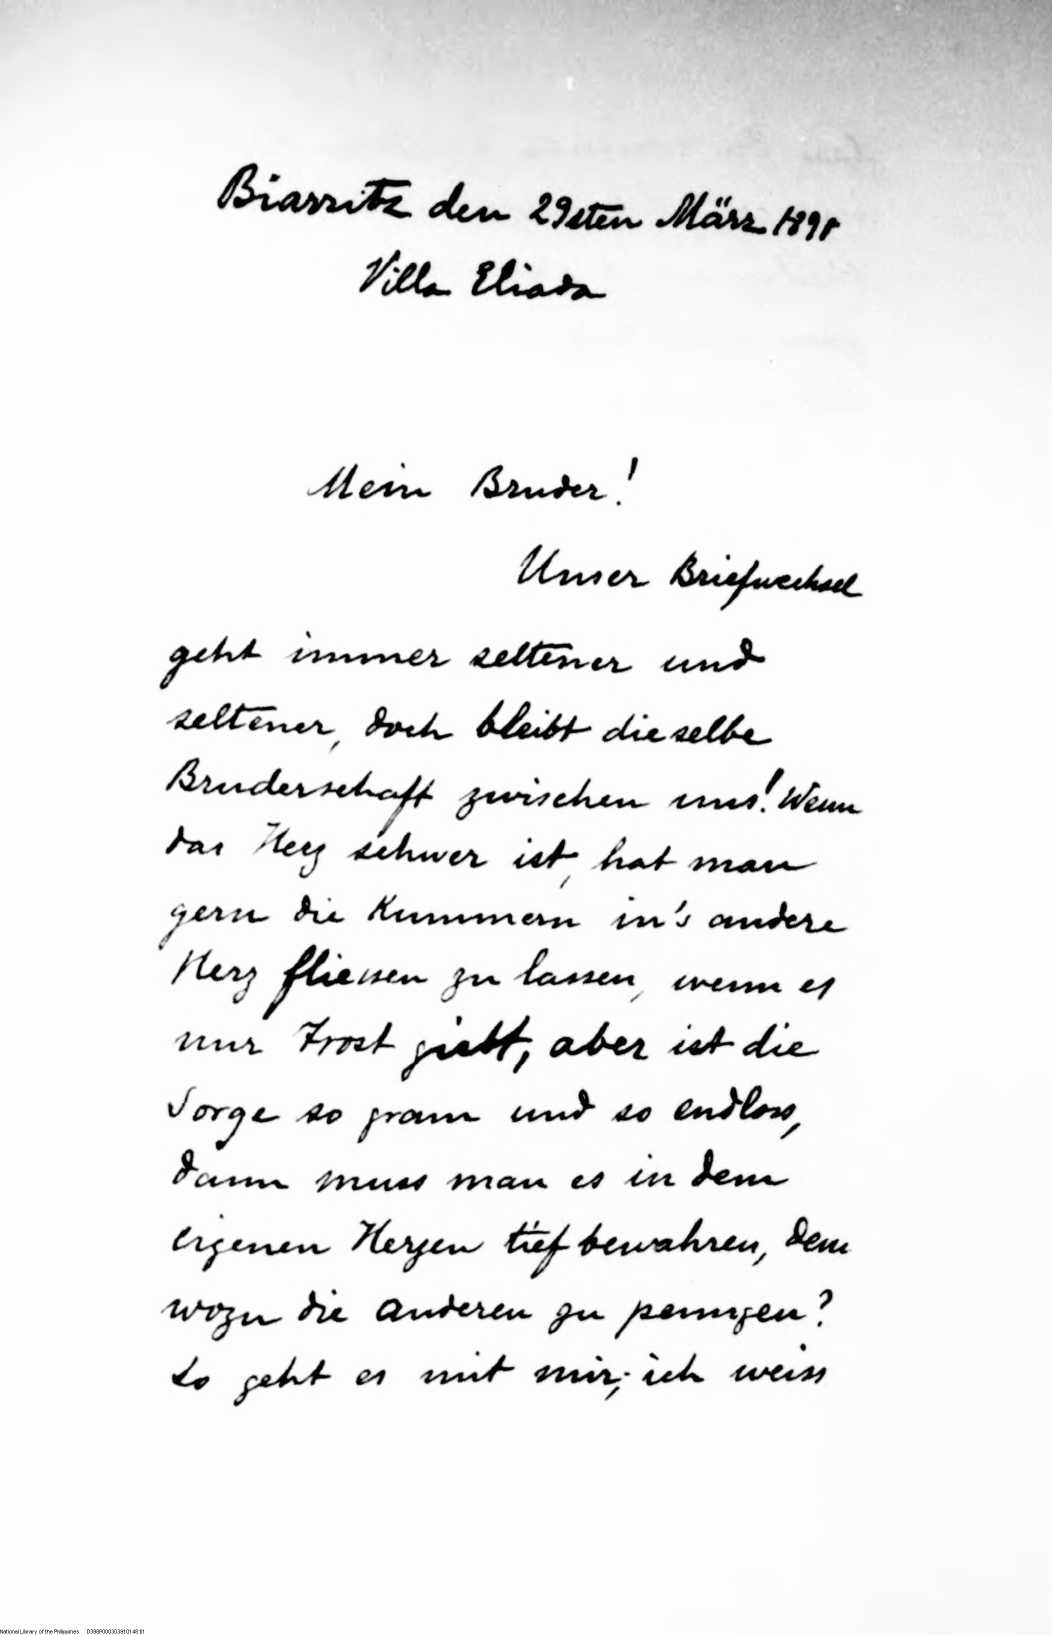 Biarritz den 29sten März 1891
Villa Eliada
Mein Bruder!
Unser Briefwechsel
geht immer seltener und
seltener, doch bleibt dieselbe
Bruderschaft zwischen uns! Wenn
das Herz schwer ist, hat man
gern die Kummern in's andere
Herz fliessen zu lassen, wenn es
nur Trost giebt, aber ist die
Sorge so gram und so endloss,
dann muss man es in dem
eigenen Herzen tief bewahren, denn
wozu die anderen zu peinigen?
So geht es mit mir; ich weiss
National Library of the Philippines